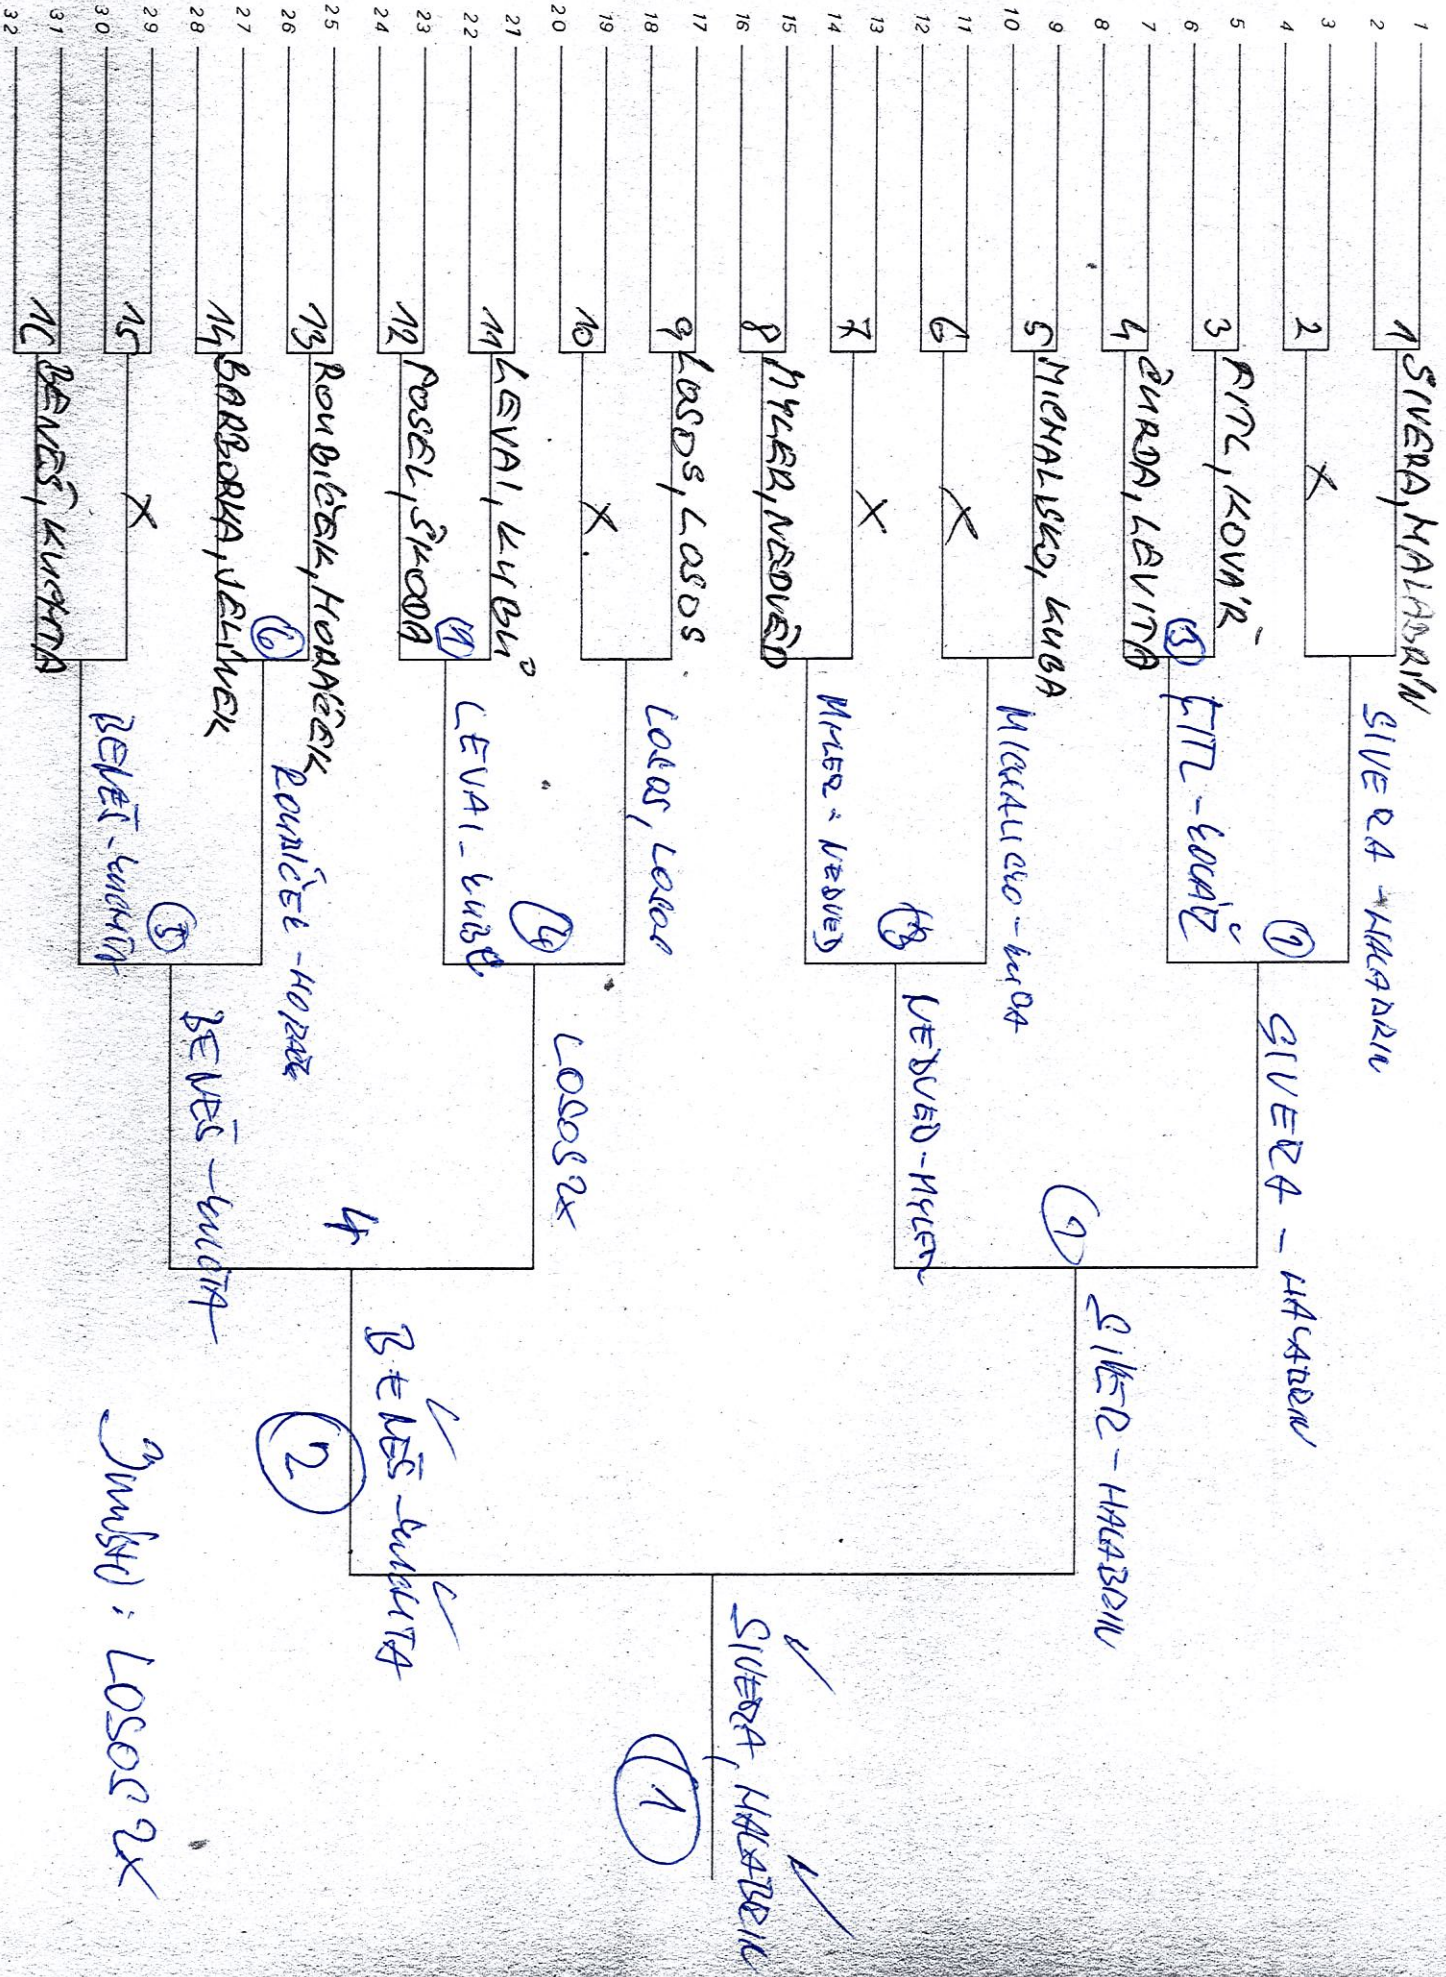 1
2
3
4
5
6
7
8
9
10
11
12
13
14
15
16
17
18
19
20
21
22
23
24
25
26
27
28
29
30
31
32
1 SIVERA, MALABRIN
2 X
3 FITL, KOVAŘ
4 ČURDA, LEVITA
5 MICHALISKO, KUBA
6 X
7 X
8 MYLER, NEDVĚD
9 LOSOS, LOSOS
10 X
11 LEVAI, KUBŮ
12 POSEL, ŠKODA
13 ROUBÍČEK, HORÁČEK
14 BARBORKA, JELÍNEK
15 X
16 BENEŠ, KUCHTA
SIVERA - MALABRIN
FITL - KOVÁŘ
MICHALISKO - KUBA
MYLER - NEDVED
LOSOS, LOSOS
LEVAI - KUBŮ
ROUBÍČEK - HORÁČEK
BENEŠ - KUCHTA
SIVERA - MALABRIN
NEDVED - MYLER
LOSOS 2X
BENEŠ - KUCHTA
4
SIVER - MALABRIN
BENEŠ - KUCHTA
2
SIVERA, MALABRIN
1
3 místo : LOSOS 2X